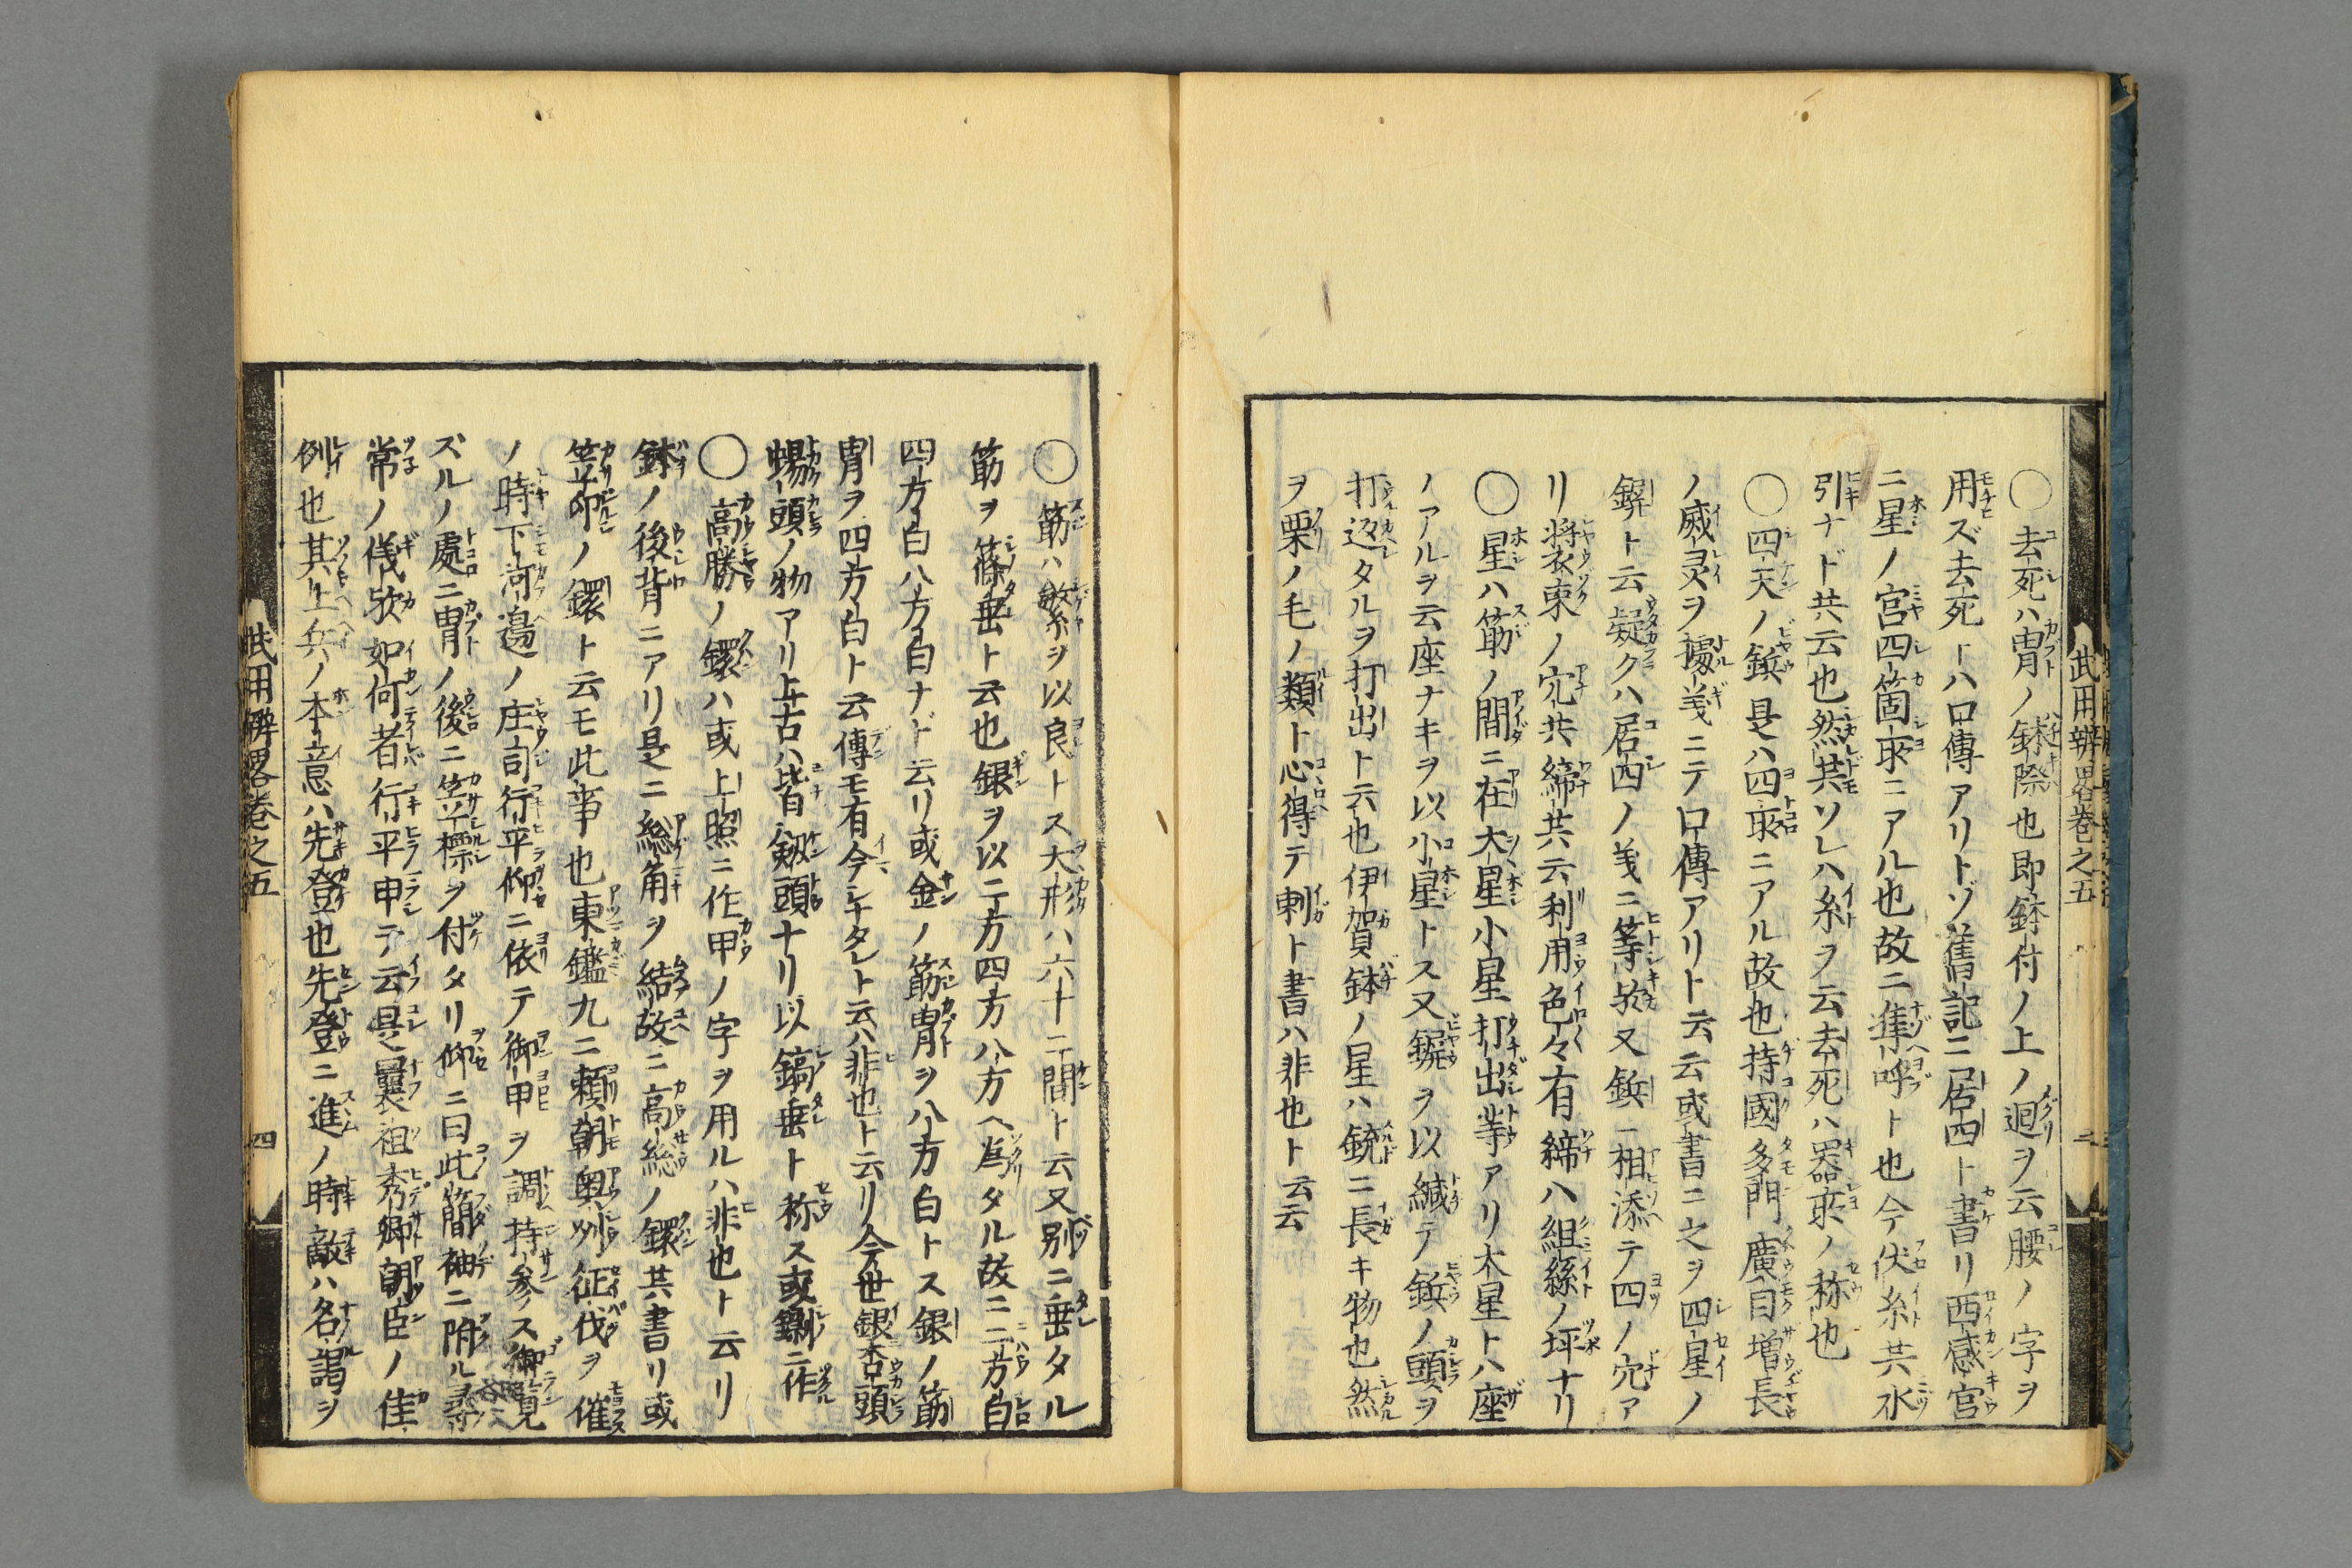 武用辨畧巻之五
〇去死ハ冑ノ鉢際也即鉢付ノ上ノ廻ヲ云腰ノ字ヲ
用ズ去死トハ口傳アリトゾ舊記ニ居四ト書リ西感宮
ニ星ノ宮四箇所ニアル也故ニ準呼ト也今伏糸共水
引ナド共云也然共ソレハ糸ヲ云去死ハ器所ノ称也
〇四天ノ鋲是ハ四所ニアル故也持國多門廣目増長
ノ威灵ヲ據義ニテ口傳アリト云云或書ニ之ヲ四星ノ
ト云疑クハ居四ノ義ニ等欤又鋲ニ相添テ四ノ穴ア
リ将衣束ノ穴共締共云利用色々有締ハ組絲ノ坪ナリ
〇星ハ筋ノ間ニ在大星小星打出等アリ大星トハ座
ノアルヲ云座ナキヲ以小星トス又鋲ヲ以縅テ鋲ノ頭ヲ
打返タルヲ打出ト云也伊賀鉢ノ星ハ銃ニ長キ物也然
ヲ栗ノ毛ノ類ト心得テ刺ト書ハ非也ト云云
〇筋ハ繁ヲ以良トス大形ハ六十二間ト云又別ニ垂タル
筋ヲ篠垂ト云也銀ヲ以二方四方八方ヘ為タル故ニ二方白
四方白八方白ナド云リ或金ノ筋冑ヲ八方白トス銀ノ筋
冑ヲ四方白ト云傳モ有今シタレト云ハ非也ト云リ今世銀杏頭
蜴頭ノ物アリ上古ハ皆剱頭ナリ以鎬垂ト称ス或ニ作
〇高勝ノ鐶ハ或上照ニ作甲ノ字ヲ用ルハ非也ト云リ
鉢ノ後背ニアリ是ニ総角ヲ結故ニ高総ノ鐶共書リ或
笠印ノ鐶ト云モ此事也東鑑九ニ頼朝奥州征伐ヲ催
ノ時下河邉ノ庄司行平仰ニ依テ御甲ヲ調持参ス御覧
ズルノ處ニ冑ノ後ニ笠標ヲ付タリ仰ニ曰此簡袖ニ附ル尋
常ノ儀欤如何者行平申テ云是曩祖秀郷朝臣ノ佳
例也其上兵ノ本意ハ先登也先登ニ進ノ時敵ハ名謁ヲ
武用辨畧巻之五　四